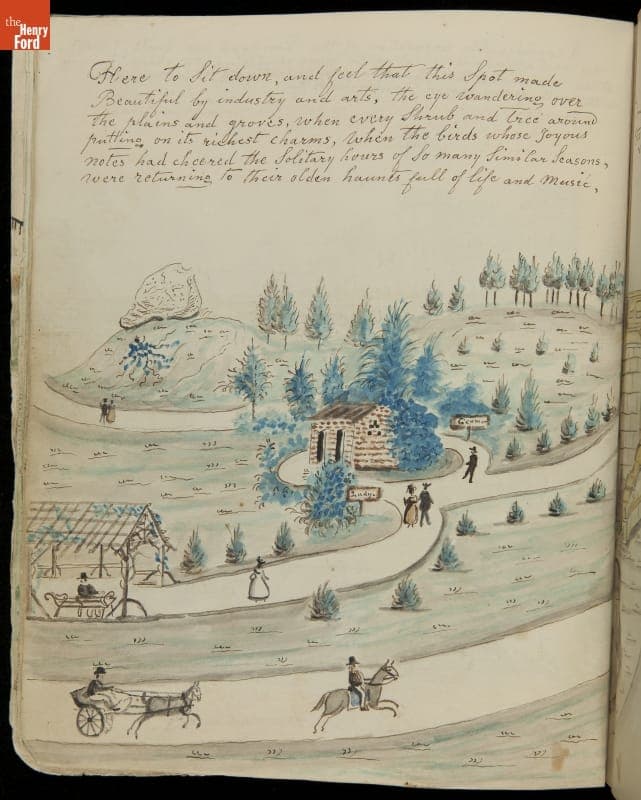 the
Henry
Ford
Here to Sit down, and feel that this Spot made
Beautiful by industry and arts, the eye wandering over
the plains and groves, when every Shrub and Tree around
putting on its richest charms, when the birds whose Joyous
notes had cheered the Solitary hours of So many Similar Seasons,
were returning to their olden haunts full of life and Music,
Lady.